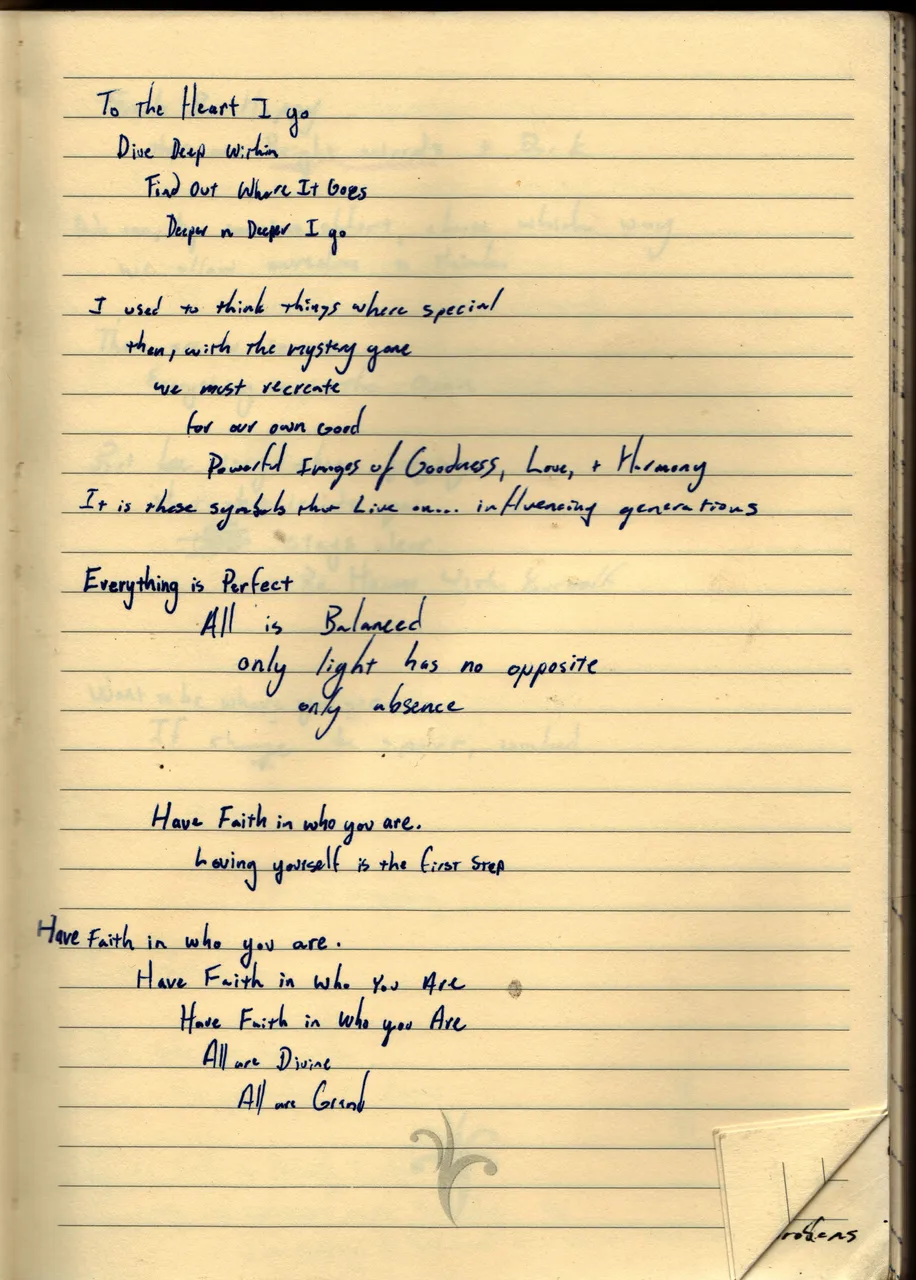 To the Heart I go
Dive Deep Within
Find Out Where It Goes
Deeper n Deeper I go
I used to think things where special
then, with the mystery gone
we must recreate
for our own Good
Powerful Images of Goodness, Love, + Harmony
It is these symbols that Live on... influencing generations
Everything is Perfect
All is Balanced
only light has no opposite
only absence
Have Faith in who you are.
Loving yourself is the first step
Have Faith in who you are.
Have Faith in who You Are
Have Faith in Who you Are
All are Divine
All are Grand